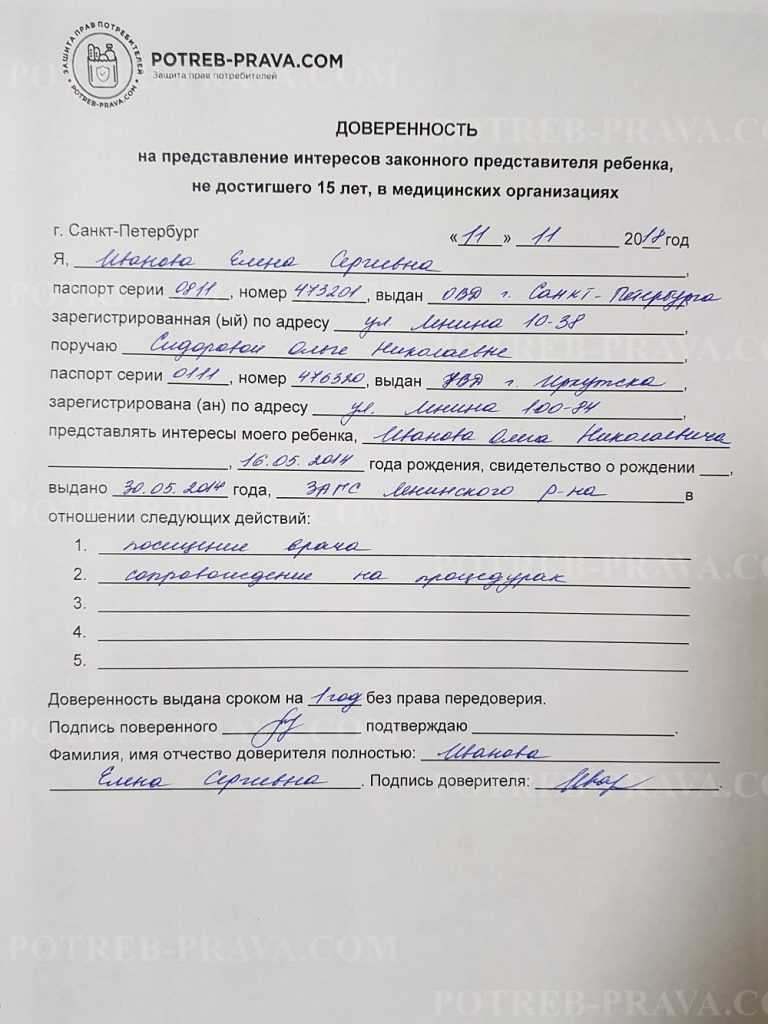 ЗАЩИТА ПРАВ ПОТРЕБИТЕЛЕЙ
POTREB-PRAVA.COM
POTREB-PRAVA.COM
Защита прав потребителей
ДОВЕРЕННОСТЬ
на представление интересов законного представителя ребенка,
не достигшего 15 лет, в медицинских организациях
г. Санкт-Петербург «11» 11 2018 год
Я, Иванова Елена Сергиевна,
паспорт серии 0811, номер 473201, выдан ОВД г. Санкт-Петербурга
зарегистрированная (ый) по адресу ул. Ленина 10-38,
поручаю Сидоровой Ольге Николаевне,
паспорт серии 0111, номер 476320, выдан УВД г. Иркутска,
зарегистрирована (ан) по адресу ул. Ленина 100-84,
представлять интересы моего ребенка, Иванова Олега Николаевича
, 16.05.2014 года рождения, свидетельство о рождении ___,
выдано 30.05.2014 года, ЗАГС Ленинского р-на в
отношении следующих действий:
1. посещение врача
2. сопровождение на процедурах
3.
4.
5.
Доверенность выдана сроком на 1 год без права передоверия.
Подпись поверенного подтверждаю .
Фамилия, имя отчество доверителя полностью: Иванова
Елена Сергиевна. Подпись доверителя: .
POTREB-PRAVA.COM
POTREB-PRAVA.COM